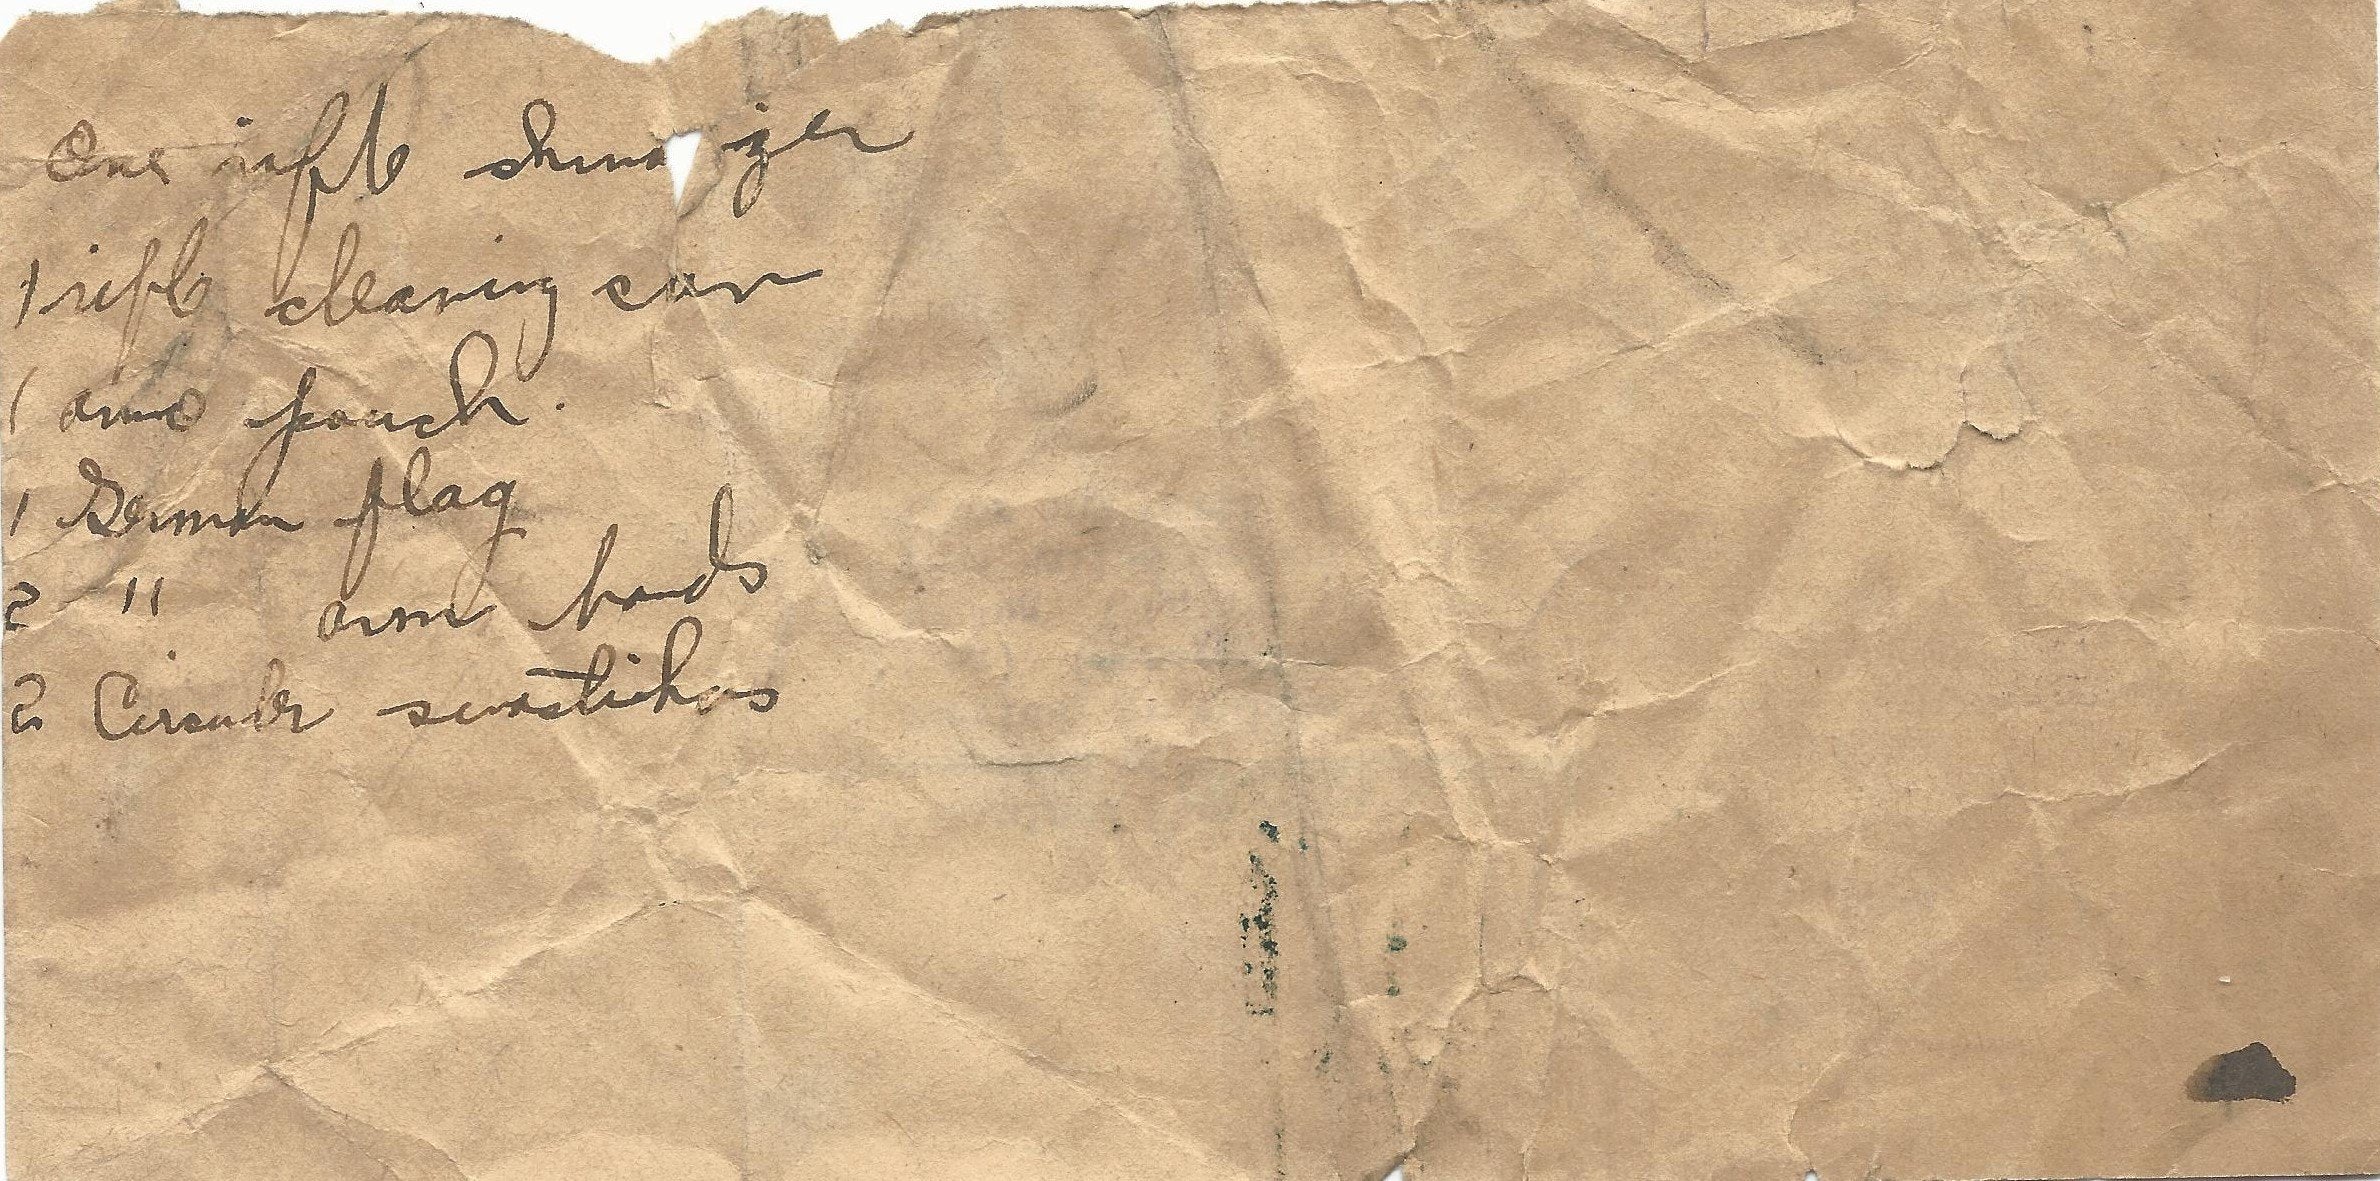 One rifle
1 rifle cleaning can
1 amo pouch.
1 German flag
2 " arm bands
2 Circular swastikas